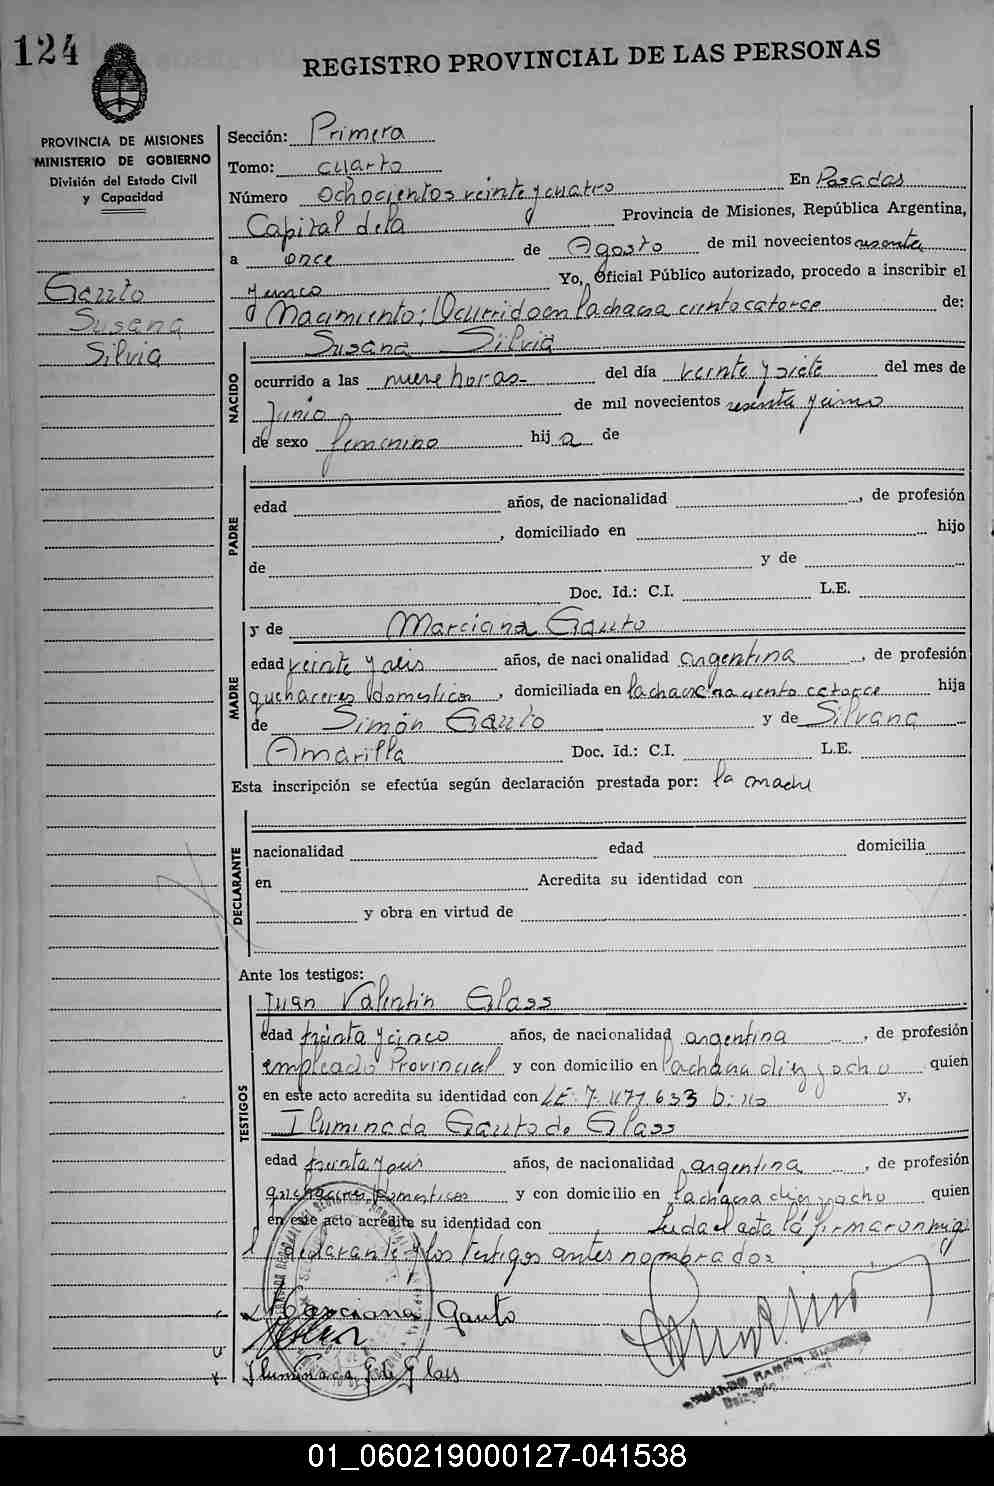 124
REGISTRO PROVINCIAL DE LAS PERSONAS
PROVINCIA DE MISIONES
MINISTERIO DE GOBIERNO
División del Estado Civil
y Capacidad
Gauto
Susana
Silvia
Sección: Primera
Tomo: cuarto
Número ochocientos veinte y cuatro En Posadas
Capital de la Provincia de Misiones, República Argentina,
a once de Agosto de mil novecientos sesenta
y cinco Yo, Oficial Público autorizado, procedo a inscribir el
Nacimiento; Ocurrido en la chacra ciento catorce de:
NACIDO
Susana Silvia
ocurrido a las nueve horas- del día veinte y siete del mes de
Junio de mil novecientos sesenta y cinco
de sexo femenino hij a de
PADRE
edad años, de nacionalidad , de profesión
, domiciliado en hijo
de y de
Doc. Id.: C.I. L.E.
MADRE
y de Marciana Gauto
edad veinte y seis años, de nacionalidad argentina , de profesión
quehaceres domesticos , domiciliada en la chacra ciento catorce hija
de Simón Gauto y de Silvana
Amarilla Doc. Id.: C.I. L.E.
Esta inscripción se efectúa según declaración prestada por: la madre
DECLARANTE
nacionalidad edad domicilia
en Acredita su identidad con
y obra en virtud de
Ante los testigos:
TESTIGOS
Juan Valentín Glass
edad treinta y cinco años, de nacionalidad argentina , de profesión
empleado Provincial y con domicilio en la chacra diez y ocho quien
en este acto acredita su identidad con LE: 7. y,
Iluminada Gauto de Glass
edad treinta y seis años, de nacionalidad argentina , de profesión
quehaceres domesticos y con domicilio en la chacra diez y ocho quien
en este acto acredita su identidad con Leida el acta la firmaron migo
declarante y los testigos antes nombrados
Marciana Gauto
Iluminada G de Glass
01_060219000127-041538